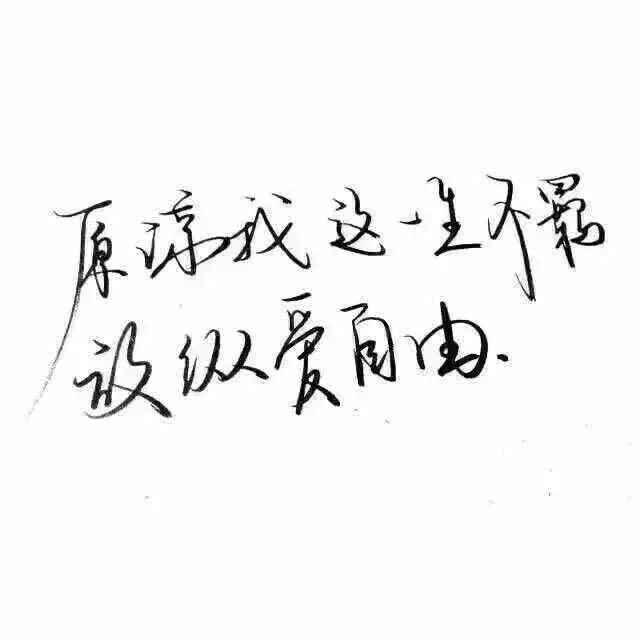 原谅我这一生不羁
放纵爱自由.